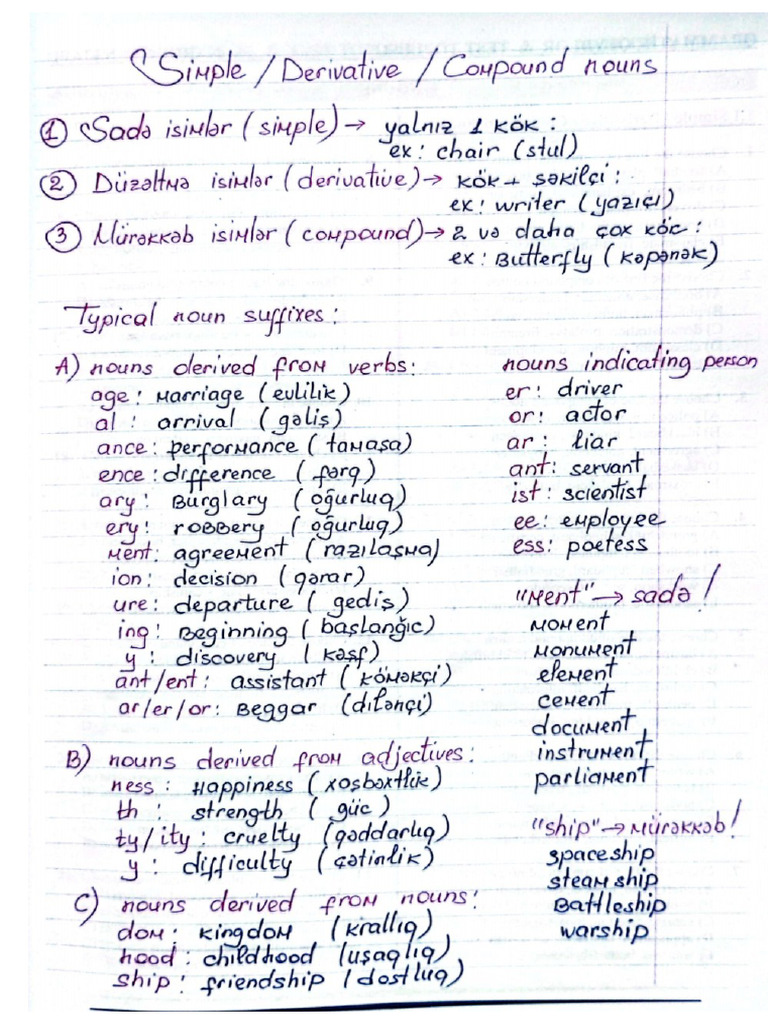 Simple / Derivative / Compound nouns
① Sadə isimlər (simple) → yalnız 1 kök :
ex: chair (stul)
② Düzəltmə isimlər (derivative) → kök + şəkilçi :
ex: writer (yazıçı)
③ Mürəkkəb isimlər (compound) → 2 və daha çox kök :
ex: Butterfly (kəpənək)
Typical noun suffixes :
A) nouns derived from verbs:
age : marriage (evlilik)
al : arrival (gəliş)
ance : performance (tamaşa)
ence : difference (fərq)
ary : Burglary (oğurluq)
ery : robbery (oğurluq)
ment : agreement (razılaşma)
ion : decision (qərar)
ure : departure (gediş)
ing : Beginning (başlanğıc)
y : discovery (kəşf)
ant/ent : assistant (köməkçi)
ar/er/or : Beggar (dilənçi)
B) nouns derived from adjectives :
ness : Happiness (xoşbəxtlik)
th : strength (güc)
ty/ity : cruelty (qəddarlıq)
y : difficulty (çətinlik)
C) nouns derived from nouns :
dom : kingdom (krallıq)
hood : childhood (uşaqlıq)
ship : friendship (dostluq)
nouns indicating person
er : driver
or : actor
ar : liar
ant : servant
ist : scientist
ee : employee
ess : poetess
"ment" → sadə !
moment
monument
element
cement
document
instrument
parliament
"ship" → mürəkkəb !
spaceship
steam ship
Battleship
warship